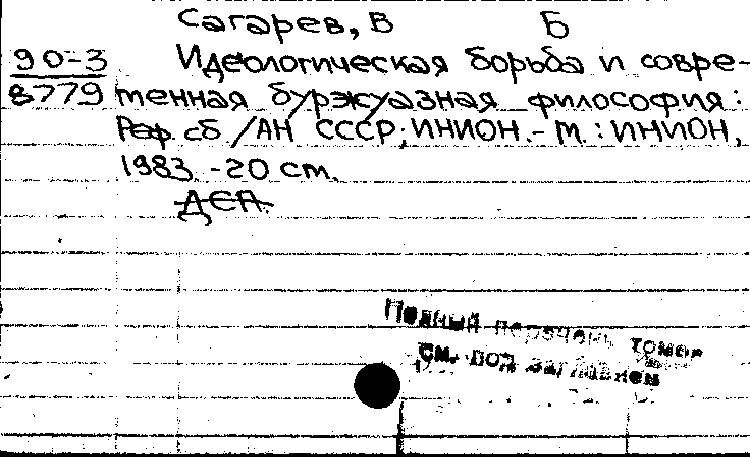 Сагарев, В Б
90-3 Идеологическая борьба и совре-
8779 менная буржуазная философия:
Реф. сб /АН СССР; ИНИОН.- М.: ИНИОН,
1983. -20 см.
ДСП.
Полный перечень томов
см. под заглавием